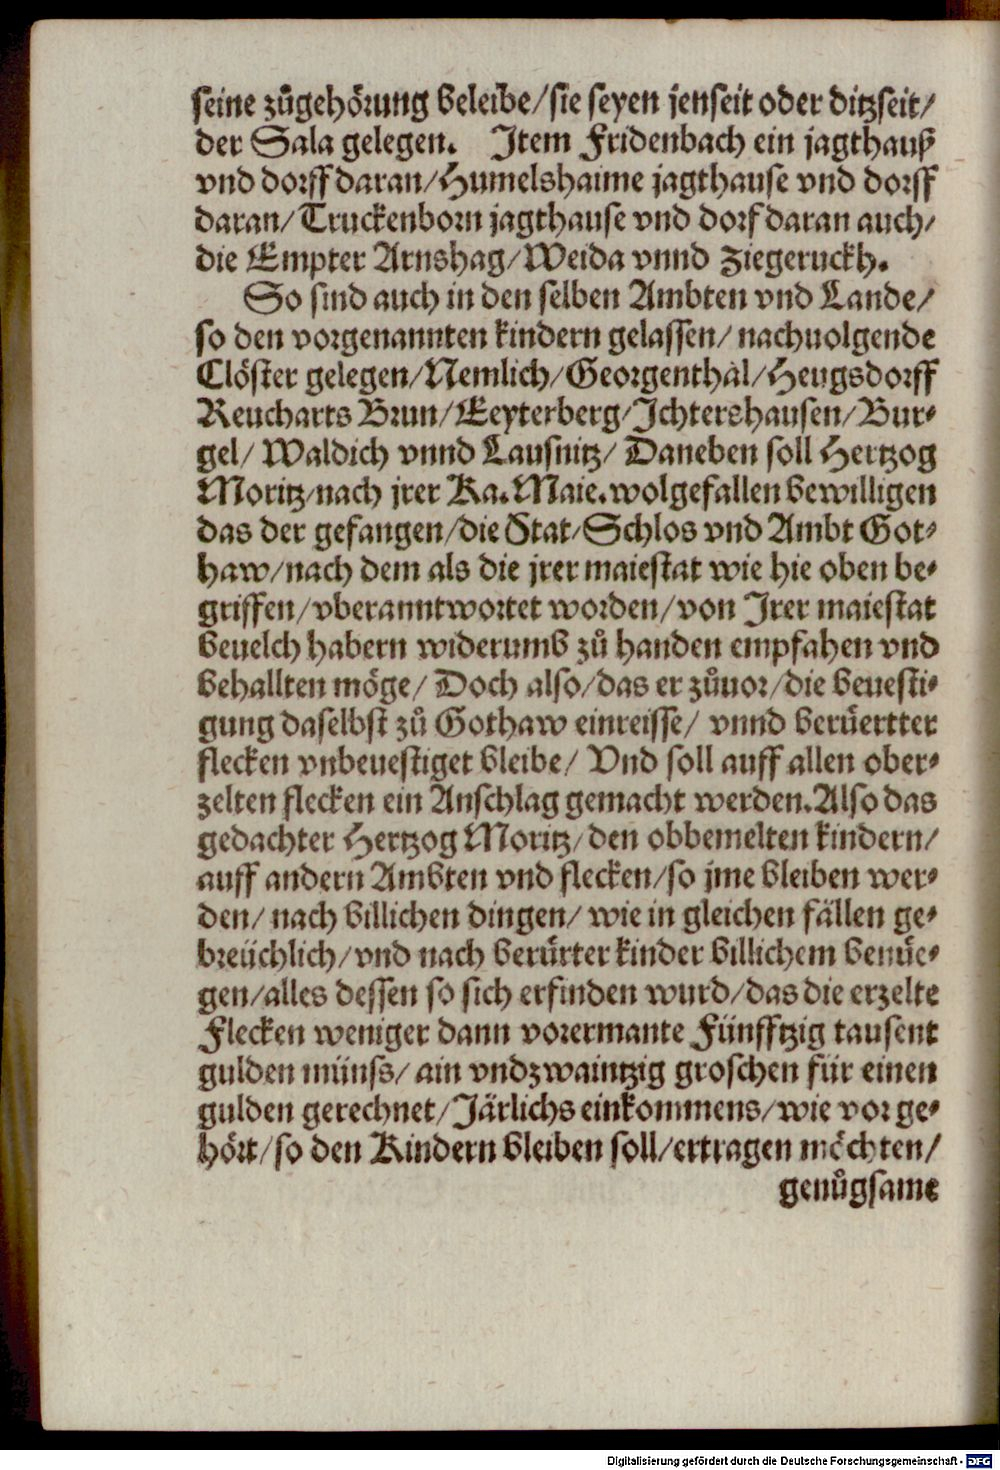 seine zůgehörung beleibe/sie seyen jenseit oder ditzseit/
der Sala gelegen. Item Fridenbach ein jagthauß
vnd dorff daran/Humelshaime jagthause vnd dorff
daran/Truckenborn jagthause vnd dorf daran auch/
die Empter Arnshag/Weida vnnd Ziegeruckh.
So sind auch in den selben Ambten vnd Lande/
so den vorgenannten kindern gelassen/ nachuolgende
Clöster gelegen/Nemlich/Georgenthàl/Heugsdorff
Reucharts Brun/Eeyterberg/Ichtershausen/Bur-
gel/ Waldich vnnd Lausnitz/ Daneben soll Hertzog
Moritz/nach jrer Ka. Maie. wolgefallen bewilligen
das der gefangen/die Stat/Schlos vnd Ambt Got-
haw/nach dem als die jrer maiestat wie hie oben be-
griffen/vberanntwortet worden/von Irer maiestat
beuelch habern widerumb zů handen empfahen vnd
behallten möge/ Doch also/das er zůuor/die beuesti-
gung daselbst zů Gothaw einreisse/ vnnd berüertter
flecken vnbeuestiget bleibe/ Vnd soll auff allen ober-
zelten flecken ein Anschlag gemacht werden. Also das
gedachter Hertzog Moritz/den obbemelten kindern/
auff andern Ambten vnd flecken/so jme bleiben wer-
den/ nach billichen dingen/ wie in gleichen fällen ge-
breüchlich/vnd nach berürter kinder billichem benüe-
gen/alles dessen so sich erfinden wurd/das die erzelte
Flecken weniger dann vorermante Fünfftzig tausent
gulden münss/ ain vndzwaintzig groschen für einen
gulden gerechnet/Järlichs einkommens/wie vor ge-
hört/so den Kindern bleiben soll/ertragen möchten/
genůgsame
Digitalisierung gefördert durch die Deutsche Forschungsgemeinschaft - DFG